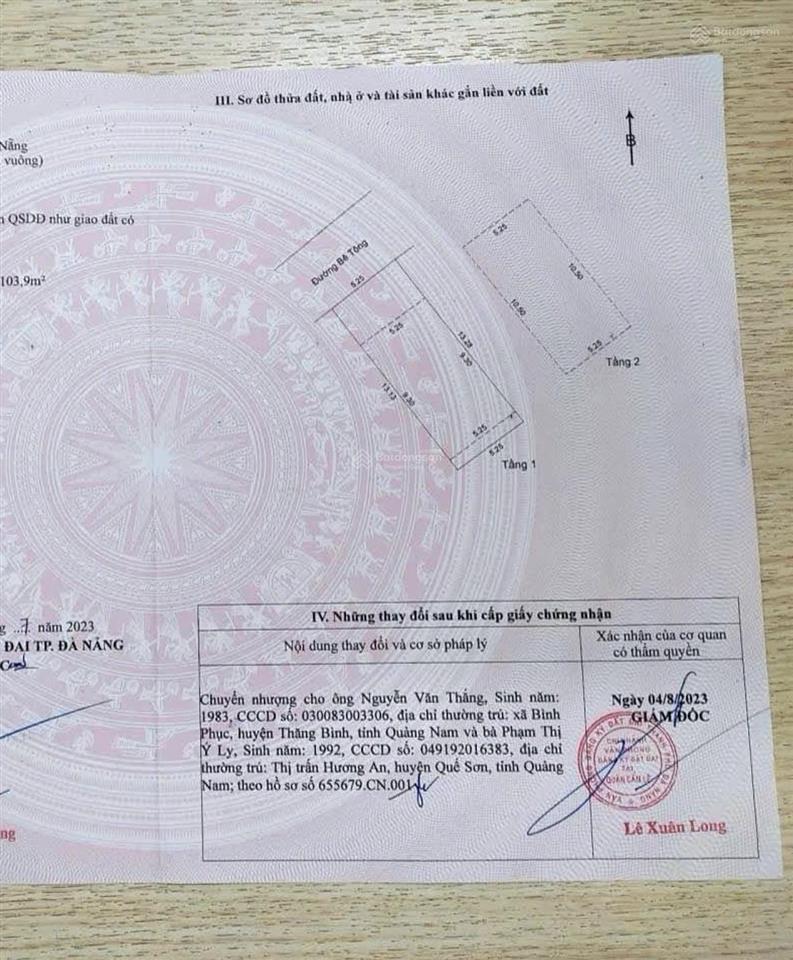 Batdongsan
III. Sơ đồ thửa đất, nhà ở và tài sản khác gắn liền với đất
B
Nẵng
vuông)
QSDĐ như giao đất có
103,9m²
Đường Bê Tông
5.25
5.25
13.28
9.30
13.13
9.30
5.25
5.25
Tầng 1
5.25
10.50
10.50
5.25
Tầng 2
Batdongsan
7 năm 2023
ĐAI TP. ĐÀ NẴNG
IV. Những thay đổi sau khi cấp giấy chứng nhận
Nội dung thay đổi và cơ sở pháp lý
Xác nhận của cơ quan
có thẩm quyền
Chuyển nhượng cho ông Nguyễn Văn Thắng, Sinh năm:
1983, CCCD số: 030083003306, địa chỉ thường trú: xã Bình
Phục, huyện Thăng Bình, tỉnh Quảng Nam và bà Phạm Thị
Ý Ly, Sinh năm: 1992, CCCD số: 049192016383, địa chỉ
thường trú: Thị trấn Hương An, huyện Quế Sơn, tỉnh Quảng
Nam; theo hồ sơ số 655679.CN.001
Ngày 04/8/2023
GIÁM ĐỐC
CHI NHÁNH
VĂN PHÒNG
ĐĂNG KÝ ĐẤT ĐAI
TẠI
QUẬN CẨM LỆ
Lê Xuân Long